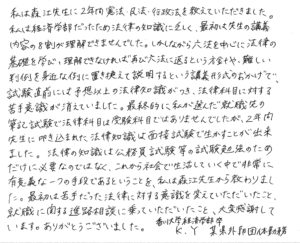 私は森江先生に2年間憲法・民法・行政法を教えていただきました。
私は経済学部だったため法律の知識に乏しく、最初は先生の講義
内容の8割が理解できませんでした。しかしながら六法を中心に法律の
基礎を学び、理解できなければ再び六法に返るという方針や、難しい
判例を身近な例に置き換えて説明するという講義形式のおかげで、
試験直前には予想以上の法律知識がつき、法律科目に対する
苦手意識が消えていました。最終的に私が選んだ就職先の
筆記試験では法律科目は受験科目ではありませんでしたが、2年間
先生に叩き込まれた法律知識は面接試験で生かすことが出来
ました。法律の知識は公務員試験等の試験勉強のため
だけに必要なのではなく、これから社会で生活していく中で非常に
有意義な一つの手段であるということを、私は森江先生から教わりまし
た。最初は苦手だった法律に対する意識を変えていただいたこと、
就職に関する進路相談に乗っていただいたこと、大変感謝して
います。ありがとうございました。
香川大学経済学部卒
K.Y 某県外郭団体勤務